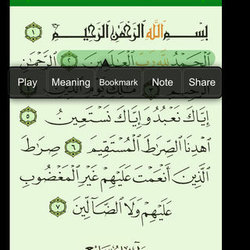 بِسْمِ ٱللَّهِ ٱلرَّحْمَٰنِ ٱلرَّحِيمِ ١
ٱلْحَمْدُ لِلَّهِ رَبِّ ٱلْعَٰلَمِينَ ٢ ٱلرَّحْمَٰنِ
Play Meaning Bookmark Note Share
إِيَّاكَ نَعْبُدُ وَإِيَّاكَ نَسْتَعِينُ ٥
ٱهْدِنَا ٱلصِّرَٰطَ ٱلْمُسْتَقِيمَ ٦ صِرَٰطَ
ٱلَّذِينَ أَنْعَمْتَ عَلَيْهِمْ غَيْرِ ٱلْمَغْضُوبِ
عَلَيْهِمْ وَلَا ٱلضَّآلِّينَ ٧